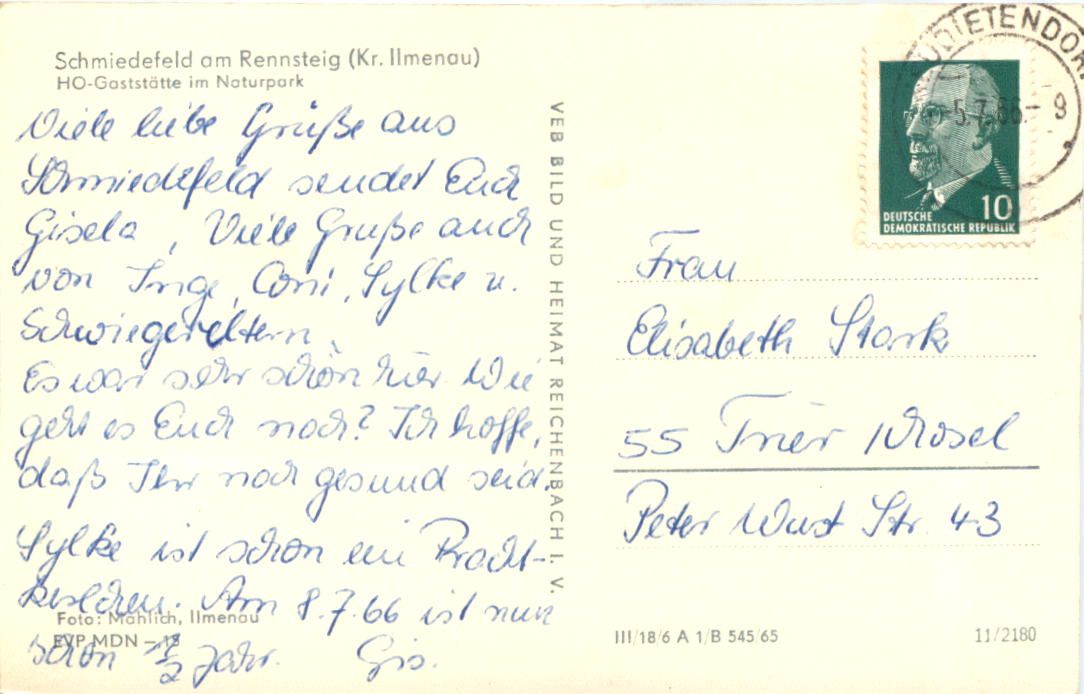 Schmiedefeld am Rennsteig (Kr. Ilmenau)
HO-Gaststätte im Naturpark
Viele liebe Grüße aus
Schmiedefeld sendet Euch
Gisela, Viele Grüße auch
von Inge, Coni, Sylke u.
Schwiegereltern.
Es war sehr schön hier. Wie
geht es Euch noch? Ich hoffe,
daß Ihr noch gesund seid.
Sylke ist schon ein Pracht-
kerlchen. Am 8.7.66 ist nun
schon 1/2 Jahr. Gis.
Foto: Mahlich, Ilmenau
EVP MDN -.15
VEB BILD UND HEIMAT REICHENBACH I. V.
NEUDIETENDORF
-5.7.66.- 9
10
DEUTSCHE
DEMOKRATISCHE REPUBLIK
Frau
Elisabeth Stark
55 Trier /Mosel
Peter Wust Str. 43
III/18/6 A 1/B 545/65
11/2180